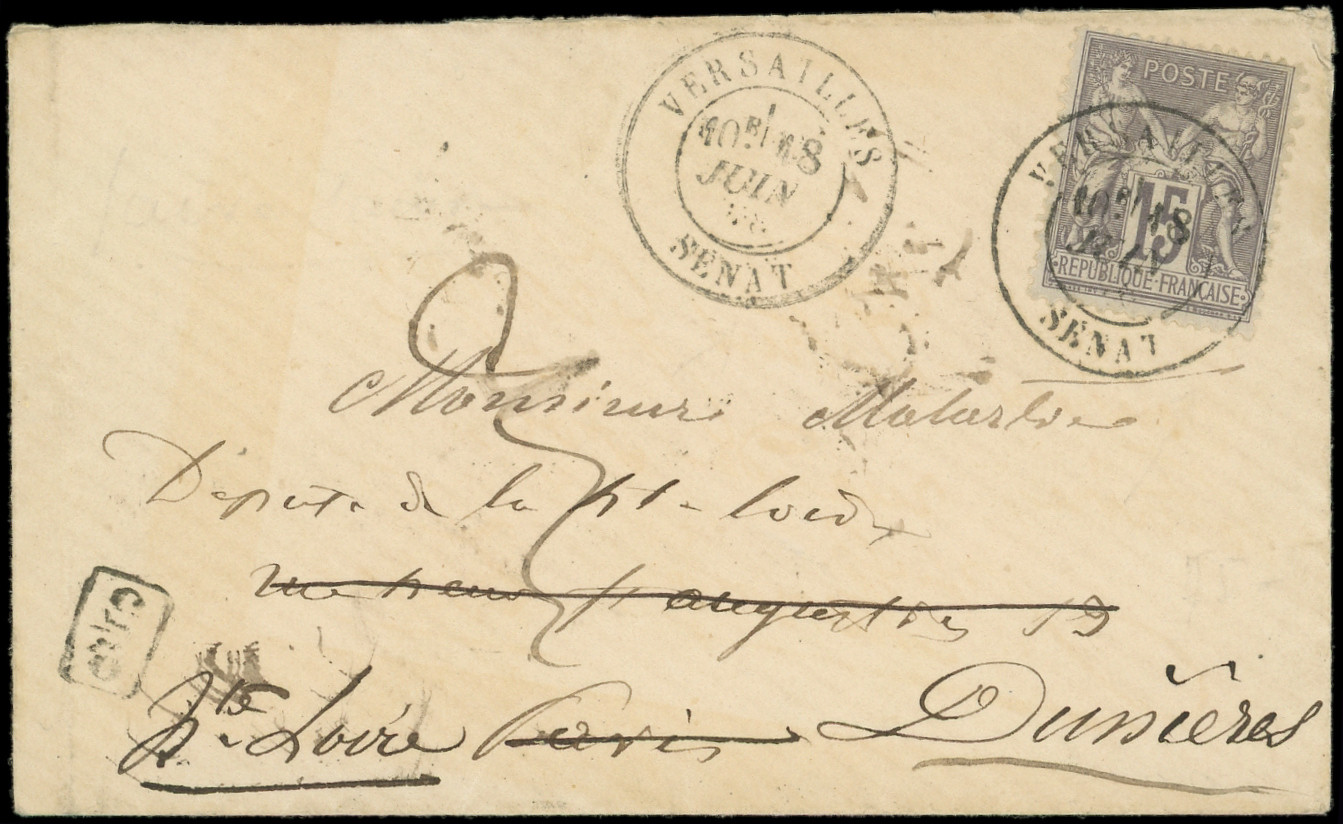 VERSAILLES
18
JUIN
SENAT
POSTE
15
REPUBLIQUE FRANÇAISE
VERSAILLES
18
SENAT
Monsieur Malartre
Député de la Hte Loire
rue 19
Hte Loire Paris Dunières